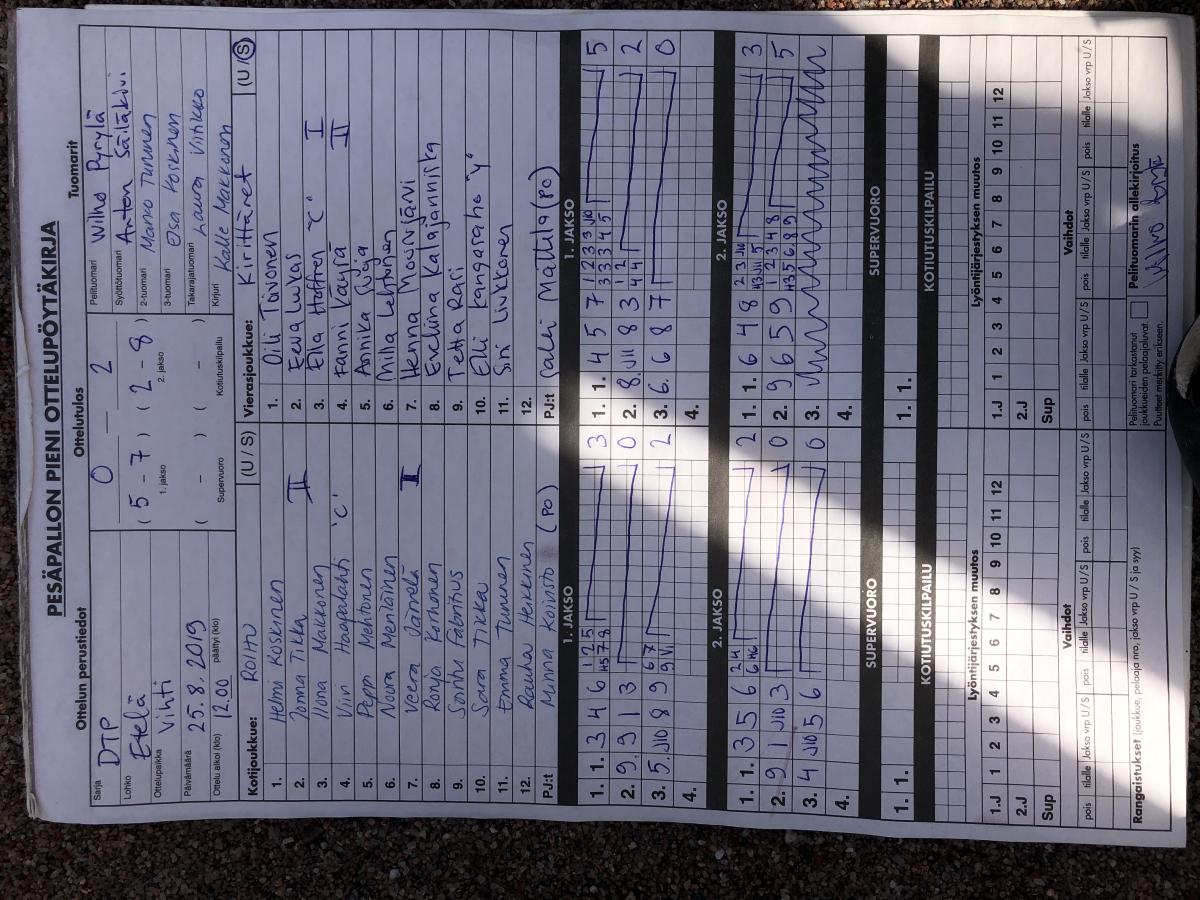 PESÄPALLON PIENI OTTELUPÖYTÄKIRJA
Ottelun perustiedot Ottelutulos Tuomarit
Sarja DTP
Lohko Etelä
Ottelupaikka Vihti
Päivämäärä 25.8.2019
Ottelu alkoi (klo) 12.00 päättyi (klo)
0 – 2
( 5 – 7 ) ( 2 – 8 )
1. jakso 2. jakso
( – ) ( – )
Supervuoro Kotiutuskilpailu
Pelituomari Wilho Pyrylä
Syöttötuomari Anton Säiläkivi
2-tuomari Marko Tuminen
3-tuomari Esa Koskinen
Takarajatuomari Laura Vitikko
Kirjuri Kalle Makkonen
Kotijoukkue: ROIHU (U / S)
1. Henni Koskinen
2. Jonna Tikka II
3. Ilona Makkonen
4. Viivi Haapalahti "C"
5. Peppi Mehtonen
6. Noora Meriläinen
7. Veera Jäinelä I
8. Ronja Korhonen
9. Sonhu Fabritius
10. Sara Tikka
11. Emma Tuminen
12. Rauha Heikkinen
PJ:t Minna Koivisto (PO)
Vierasjoukkue: Kirittäret (U / S)
1. Oili Toivonen
2. Eeva Lukas
3. Ella Hoffren "C" I
4. Fanni Käyrä II
5. Annika Ruoja
6. Milla Lehtonen
7. Henna Moonjärvi
8. Eveliina Kalajanniska
9. Tetta Rari
10. Elli Kangasaho "y"
11. Sini Liukkonen
12.
PJ:t Jalei Mättilä (PO)
1. JAKSO
1. 1. 3 4 6 1 2 5 H5 7 8 3
2. 9 9 1 3 0
3. 5 J10 8 9 6 7 9 VI 2
4.
2. JAKSO
1. 1. 3 5 6 2 4 6 H6 2
2. 9 1 J10 3 0
3. 4 J10 5 6 0
4.
SUPERVUORO
1. 1.
KOTIUTUSKILPAILU
1. JAKSO
1. 1. 4 5 7 1 2 3 3 J10 3 3 3 4 5 5
2. 8 J11 8 3 1 2 4 4 2
3. 6 6 8 7 0
4.
2. JAKSO
1. 1. 6 4 8 2 3 J10 H3 J11 5 3
2. 9 6 5 9 1 2 3 4 8 H3 5 6 8 9 5
3.
4.
SUPERVUORO
1. 1.
KOTIUTUSKILPAILU
Lyöntijärjestyksen muutos
1.J 1 2 3 4 5 6 7 8 9 10 11 12
2.J
Sup
Vaihdot
pois tilalle Jakso vrp U / S pois tilalle Jakso vrp U / S pois tilalle Jakso vrp U / S
Lyöntijärjestyksen muutos
1.J 1 2 3 4 5 6 7 8 9 10 11 12
2.J
Sup
Vaihdot
pois tilalle Jakso vrp U / S pois tilalle Jakso vrp U / S pois tilalle Jakso vrp U / S
Rangaistukset (joukkue, pelaaja nro, jakso vrp U / S ja syy)
Pelituomari tarkastanut
joukkueiden pelaajaluvat.
Puutteet merkitty erikseen.
Pelituomarin allekirjoitus